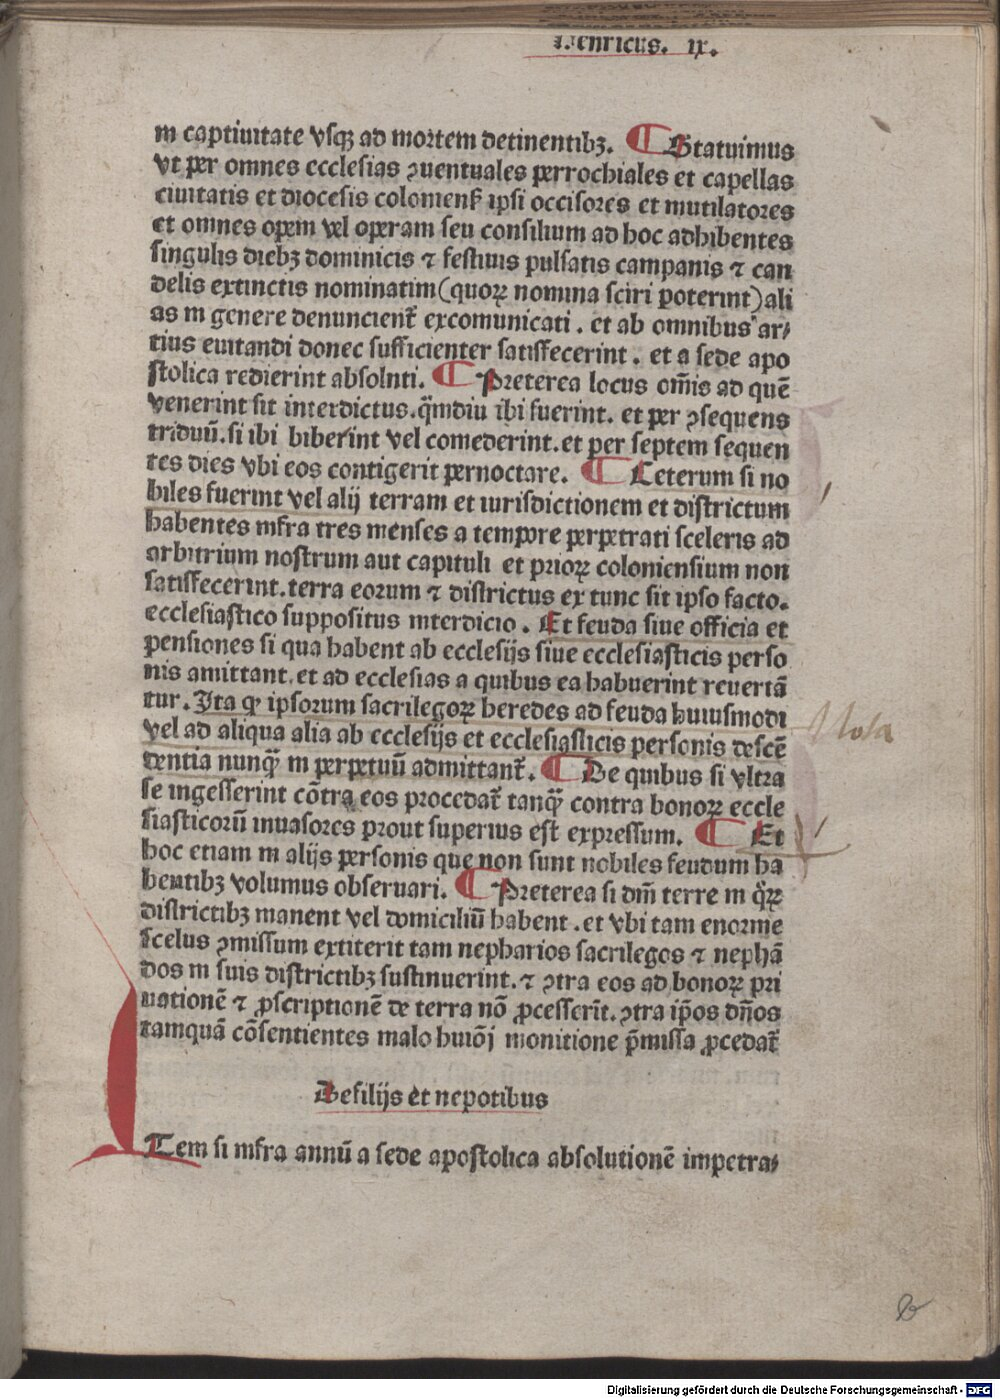 Henricus. ix.
in captiuitate vsqꝫ ad mortem detinentibꝫ. ¶ Statuimus
vt per omnes ecclesias ꝯuentuales perrochiales et capellas
ciuitatis et diocesis coloniensꝭ ipsi occisores et mutilatores
et omnes opem vel operam seu consilium ad hoc adhibentes
singulis diebꝫ dominicis ⁊ festiuis pulsatis campanis ⁊ can
delis extinctis nominatim (quoꝝ nomina sciri poterint) ali
as in genere denuncient᷑ excomunicati . et ab omnibus ar⸗
tius euitandi donec sufficienter satisfecerint . et a sede apo
stolica redierint absoluti. ¶ Preterea locus om̄is ad quē
venerint sit interdictus. q̄mdiu ibi fuerint. et per ꝯsequens
triduū. si ibi biberint vel comederint. et per septem sequen
tes dies vbi eos contigerit pernoctare. ¶ Ceterum si no
biles fuerint vel alij terram et iurisdictionem et districtum
habentes infra tres menses a tempore perpetrati sceleris ad
arbitrium nostrum aut capituli et prioꝝ coloniensium non
satisfecerint. terra eorum ⁊ districtus ex tunc sit ipso facto.
ecclesiastico suppositus interdicto . Et feuda siue officia et
pensiones si qua habent ab ecclesijs siue ecclesiasticis perso
nis amittant. et ad ecclesias a quibus ea habuerint reuertā
tur. Ita ꝙ ipsorum sacrilegoꝝ heredes ad feuda huiusmodi
vel ad aliqua alia ab ecclesijs et ecclesiasticis personis descē
dentia nunq̄ in perpetuū admittant᷑. ¶ De quibus si vltra
se ingesserint cōtra eos procedat᷑ tanq̄ contra bonoꝝ eccle
siasticorū inuasores prout superius est expressum. ¶ Et
hoc etiam in alijs personis que non sunt nobiles feudum ha
bentibꝫ volumus obseruari. ¶ Preterea si dn̄i terre in q̊ꝝ
districtibꝫ manent vel domiciliū habent . et vbi tam enorme
scelus ꝯmissum extiterit tam nepharios sacrilegos ⁊ nephā
dos in suis districtibꝫ sustinuerint. ⁊ ꝯtra eos ad bonoꝝ pri
uationē ⁊ ꝓscriptionē de terra nō ꝓcesserīt. ꝯtra ip̄os dn̄os
tamquā cōsentientes malo huiōj monitione p̄missa ꝓcedat᷑
Nota
De filijs et nepotibus
ITem si infra annū a sede apostolica absolutionē impetra⸗
b
Digitalisierung gefördert durch die Deutsche Forschungsgemeinschaft - DFG